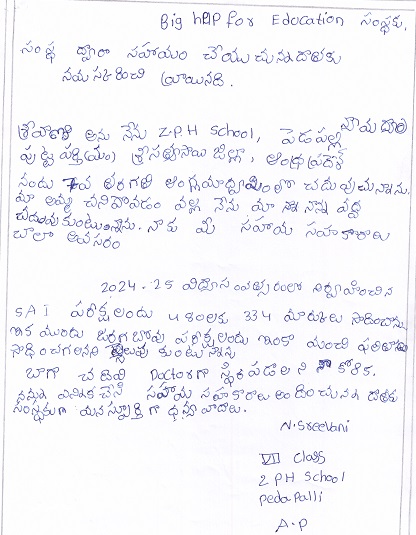 Big help for Education సంస్థకు,
సంస్థ ద్వారా సహాయం చేయుచున్న దాతకు
నమస్కరించి వ్రాయునది.
శ్రీవాణి అను నేను Z.P.H School, పెదపల్లి
పుట్టపర్తి(మం) శ్రీ సత్యసాయి జిల్లా, ఆంధ్రప్రదేశ్
నందు 7వ తరగతి ఆంగ్లమాధ్యమంలో చదువుచున్నాను.
మా అమ్మ చనిపోవడం వల్ల నేను మా నాన్న వద్ద
చదువుకుంటున్నాను. నాకు మీ సహాయ సహకారాలు
చాలా అవసరం
2024-25 విద్యాసంవత్సరంలో నిర్వహించిన
SAI పరీక్షలందు 334 మార్కులు సాధించాను.
ఇక ముందు జరగబోవు పరీక్షలందు ఇంకా మంచి ఫలితాలు
సాధించగలనని తెలుపు కుంటున్నాను
బాగా చదివి Doctorగా స్థిరపడాలని నా కోరిక.
నన్ను ఎంపిక చేసి సహాయ సహకారాలు అందించుచున్న దాతకు
సంస్థకును మనస్పూర్తి గా ధన్యవాదాలు.
N. Sreevani
VII class
Z PH School
Peda Palli
A.P